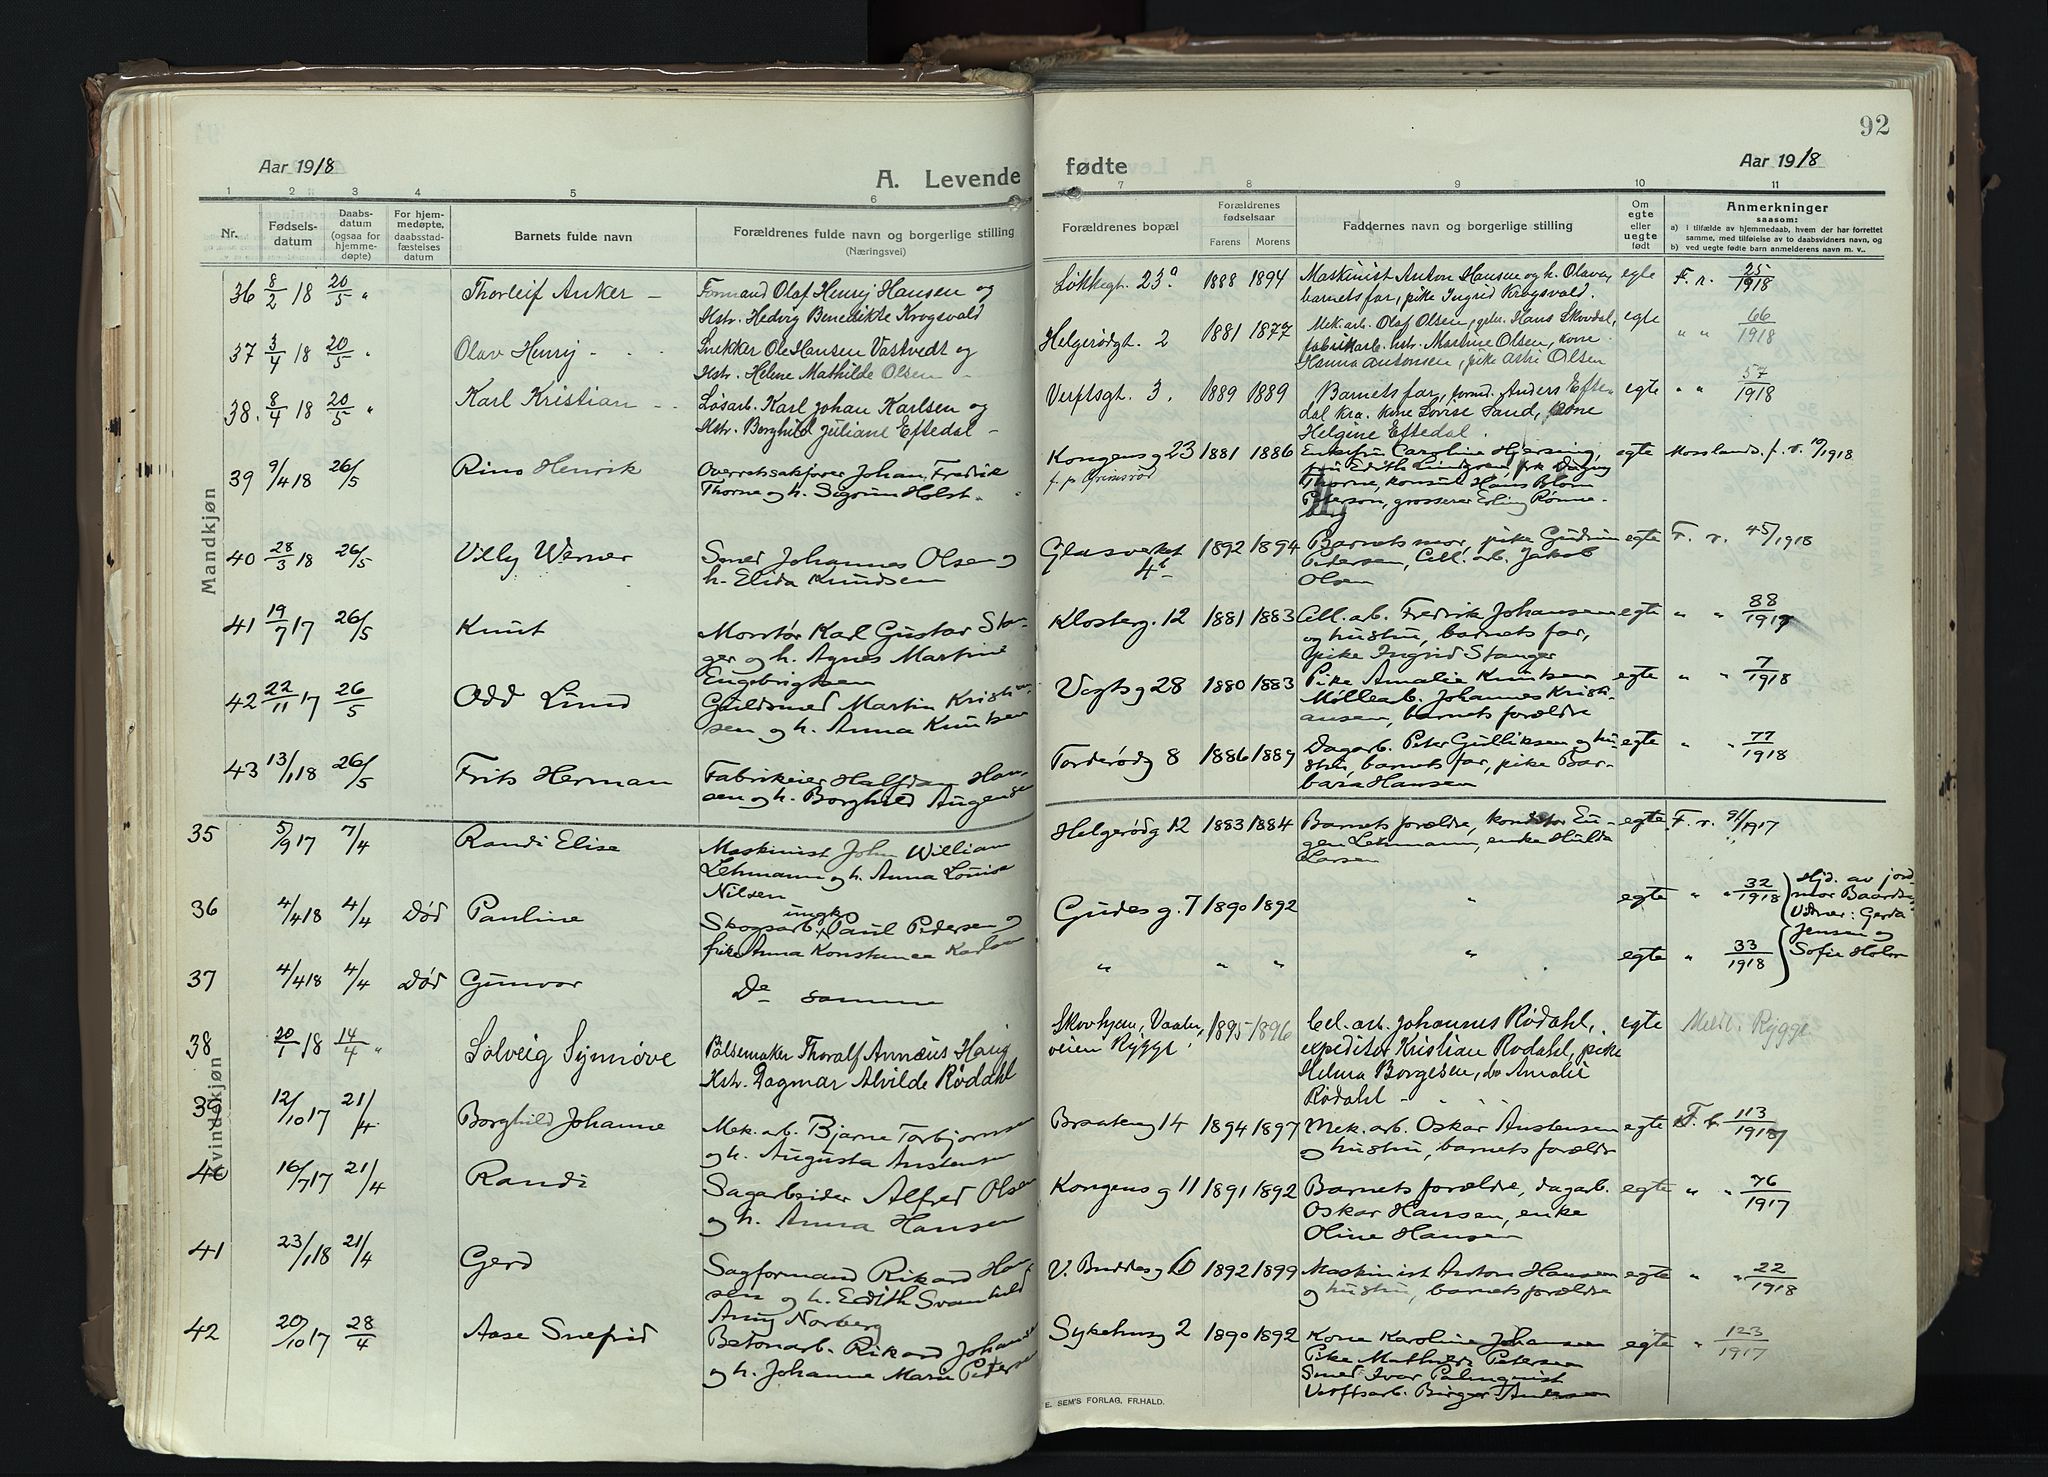 92
Aar 1918
A. Levende
fødte
Aar 1918
1 2 3 4 5 6 7 8 9 10 11
Nr.
Fødsels-
datum
Daabs-
datum
(ogsaa for
hjemme-
døpte)
For hjem-
medøpte,
daabsstad-
fæstelses
datum
Barnets fulde navn
Forældrenes fulde navn og borgerlige stilling
(Næringsvei)
Forældrenes bopæl
Forældrenes
fødselsaar
Farens Morens
Faddernes navn og borgerlige stilling
Om
egte
eller
uegte
født
Anmerkninger
saasom:
a) i tilfælde av hjemmedaab, hvem der har forrettet
samme, med tilføielse av to daabsvidners navn, og
b) ved uegte fødte barn anmelderens navn m. v..
Mandkjøn
36 8/2 18 20/5 " Thorleif Anker - Formand Olaf Henrij Hansen og Løkkegt. 23a 1888 1894 Maskinist Anton Hansen og h. Olava, egte F. r. 25/1918
Hstr. Hedvig Benedikte Krogsvald barnets far, pike Ingrid Krogsvald.
37 3/4 18 20/5 " Olav Henrij - Snekker Ole Hansen Vastvedt og Helgerødgt. 2 1881 1877 Mek. arb. Olaf Olsen, Hans Skovdal, egte " " 66/1918
Hstr. Helene Mathilde Olsen - fabrikarb. hstr. Martine Olsen, kone
Hanna Antonsen, pike Astri Olsen
38. 8/4 18 20/5 " Karl Kristian - Løsarb. Karl Johan Karlsen og Verftsgt. 3. 1889 1889 Barnets far, Anders Efte- egte " " 57/1918
Hstr. Borghild Juliane Eftedal - dal kra. kone Lovise Sand, kone
Helgine Eftedal.
39 9/4 18 26/5 Rino Henrik Overretssakfører Johan Fredrik Kongens g 23 1881 1886 Enkefru Caroline egte Mosslands. f. r. 10/1918
Thorne og h. Sigrun Holst. f. pr Grimsrød fru Edith Lindgren, frk Dagny
Thorne, konsul Hans Blom
Peterson, grosserer Erling Rønne-
berg
40 28/3 18 26/5 Villy Werner Smed Johannes Olsen og Glasverket 1892 1894 Barnets mor, pike Gudrun egte F. r. 45/1918
h. Elida Knudsen 4b Petersen, Cell. arb. Jakob
Olsen
41 19/7 17 26/5 Knut Montør Karl Gustav Stan- Klosterg. 12 1881 1883 Cell. arb. Fredrik Johansen egte " " 88/1917
ger og h. Agnes Martine og hustru, barnets far,
Engebrigtsen pike Ingrid Stanger
42 22/11 17 26/5 Odd Lund Guldsmed Martin Kristian- Vogts g 28 1880 1883 Pike Amalie Knutsen egte " " 7/1918
sen og h. Anna Knutsen Møllearb. Johannes Kristi-
ansen, barnets forældre
43 13/1 18 26/5 Frits Herman Fabrikeier Halfdan Han- Torderødg 8 1886 1889 Dagarb. Peter Gulliksen og hu- egte " " 77/1918
sen og h. Borghild Augensen stru, barnets far, pike Bar-
bara Hansen
Kvindekjøn
35 5/9 17 7/4 Randi Elise Maskinist John William Helgerødg 12 1883 1884 Barnets forældre, konditor Eu- egte F. r. 91/1917
Lehmann og h. Anna Lovise gen Lehmann, enke Hulda
Nilsen Larsen
36 4/4 18 4/4 Død Pauline Skogsarb. ungk. Paul Pedersen og Gudes g. 7 1890 1892 " egte " " 32/1918 Hjd. av jord-
pike Anna Konstance Karlsen mor Baardsen
Vidner: Gerda
37 4/4 18 4/4 Død Gunvor De samme " " " " egte " 33/1918 Jensen og
Sofie Holm
38 20/1 18 14/4 " Sølveig Synnøve Pølsemaker Thoralf Annæus Haug Skovhjem, Vaaler- 1895 1896 Cel. arb. Johannes Rødahl, egte Meld. Rygge
Hstr. Dagmar Alvilde Rødahl veien Rygge. expeditør Kristian Rødahl, pike
Helma Borgesen, do Amalie
Rødahl -
39 12/10 17 21/4 Borghild Johanne Mek. arb. Bjarne Torbjørnsen Braateng 14 1894 1897 Mek. arb. Oskar Austensen egte F. r. 113/1917
og h. Augusta Austensen og hustru, barnets forældre
40 16/7 17 21/4 Randi Sagarbeider Alfred Olsen Kongens g 11 1891 1892 Barnets forældre, dagarb. egte " " 76/1917
og h. Anna Hansen Oskar Hansen, enke
Oline Hansen
41 23/1 18 21/4 Gerd Sagformand Rikard Han- V. Buddesg 6 1892 1899 Maskinist Anton Hansen egte " " 22/1918
sen og h. Edith Svanhild og hustru, barnets forældre
Amy Norberg
42 20/10 17 28/4 Aase Snefrid Betonarb. Rikard Johansen Sykehusg 2 1890 1892 Kone Karoline Johansen egte " 123/1917
og h. Johanne Marie Petersen Pike Mathilde Petersen
Smed Ivar Palmqvist
Verftsarb. Birger Andersen
E. SEM'S FORLAG, FR.HALD.